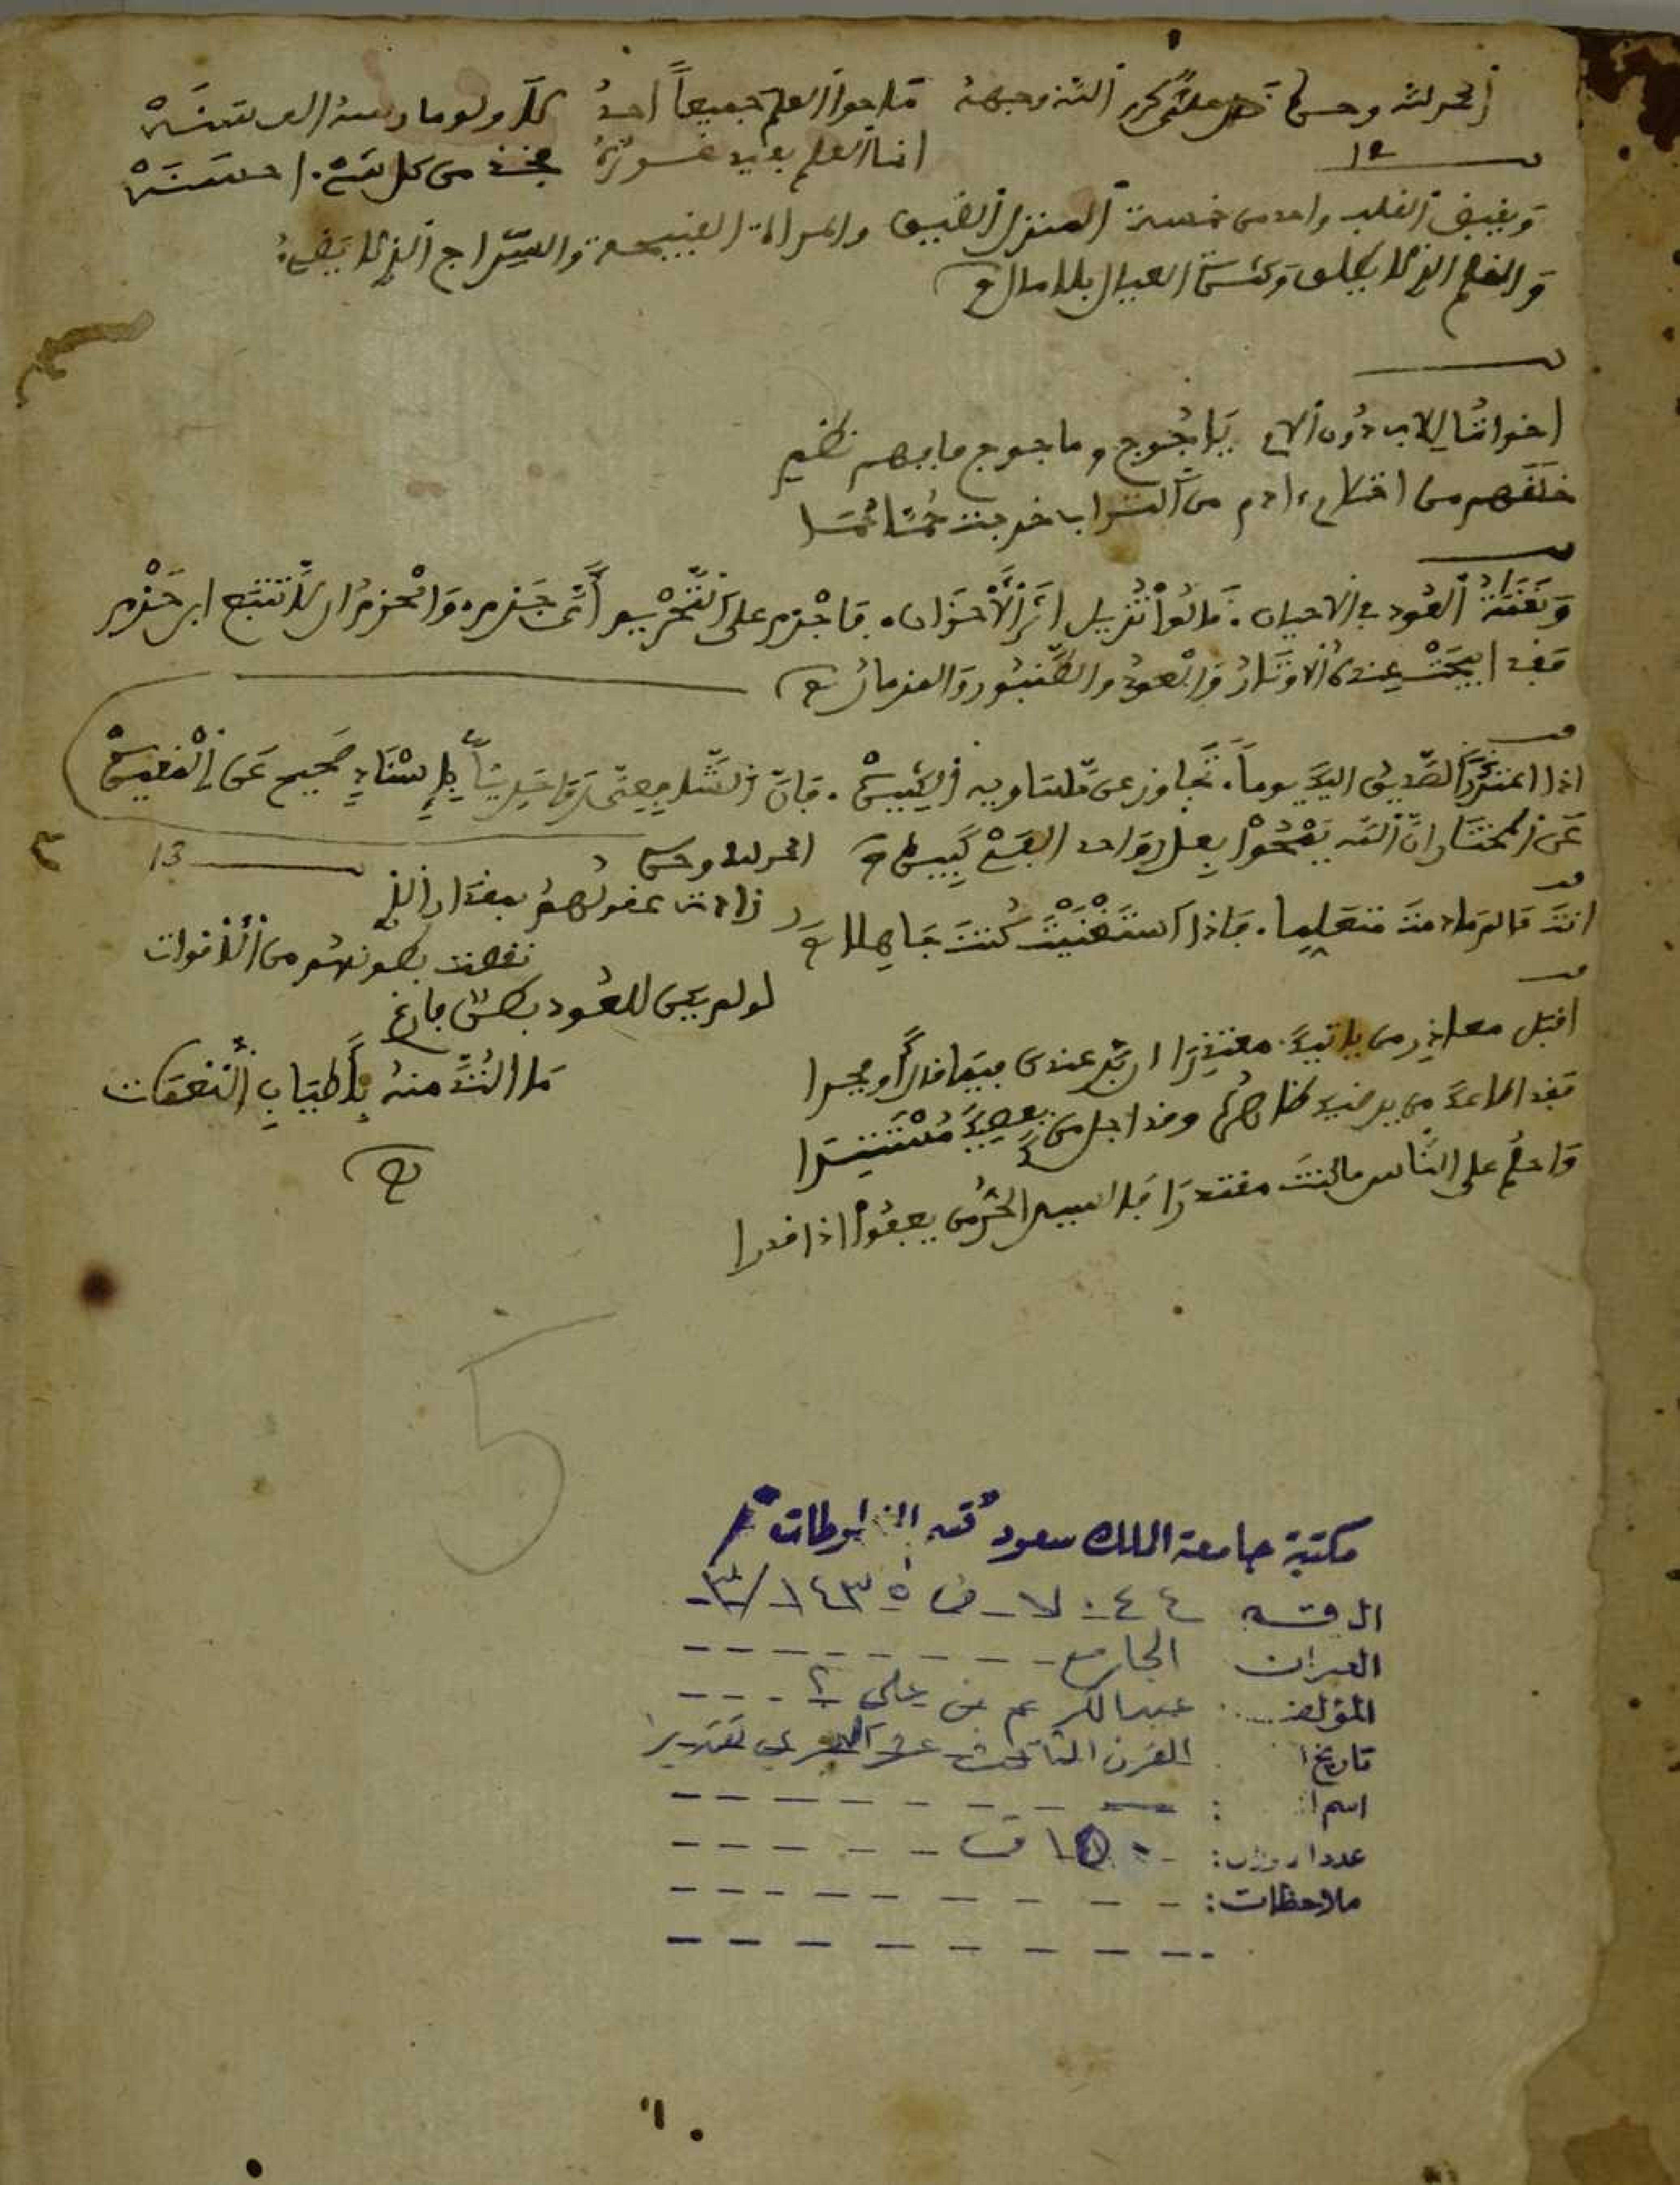 الحمد لله وحده علي كرم الله وجهه ما حوا العلم جميعاً احدُ كلّا ولو مارسه الف سنَهْ
12
انما العلم بعيد غوره فخذ من كل شيء احسنَهْ
وَيغيض القلب واحد من خمسة المنزل الضيق والمراة القبيحة والسّراج الذي لا يضيءُ
وَالقلم الذي لا يكتب وَكثرة العيال بلا مال
اخواننا للاب دون الام يَاجُوج وماجوج ما بهم
خلقهم من احتلام ءادم من التراب خرجت
وَنَغَمَةُ العُود في الاحيان . قالوا تُزيل اثرَ الأحزَان . فاجزم على التّحْريم أيَّ جَزم . وَالحزمُ ان لا تتبع ابن حَزْم
فقد ابيحَتْ عنده الاوتارُ وَالعودُ والطّنبُور وَالمزمارُ
اذا اعتذرَ الصّديق اليكَ يوماً . تجاوز عن مساويه الكثيرهْ . فانّ الشّافعي روى حديثاً بإسنادٍ صَحيح عَن المغيرهْ
عَن المختار انّ الله يَمْحُوا بعذرٍ وَاحد الفَيْ كَبيره
الحمد لله وحده
13
انتَ ما دمتَ متعلما . فاذا استَغْنَيْتَ كُنتَ جَاهلا
زادت عقولهُمُ بمقدار الذي
نقصت بطونهم من الأقوات
لو لم يكن للعُود بطن فارغ
مَا التذّ منه بأطيَابِ النّغمَات
اقبل معاذير من ياتيكَ معتذِرَا ان بَرّ عندك فيمَا قال أو فجرا
فقد اطاعكَ من يرضيك ظاهرُهُ وقد اجلكَ من يعصيكَ مُسْتَتِرَا
وَاحلُم على النّاس ما كنتَ مقتدرَا فالسيد الحُرُّ من يعفوا اذا قدرا
5
مكتبة جامعة الملك سعود "قسم المخطوطات"
الرقم ٧٠٤٤ ف ١٤٣٥/٣
العنوان الجامع
المؤلف عبد الكريم بن علي ؟
تاريخ القرن الثالث عشر الهجري تقديرا
اسم :
عدد الأوراق: ١٥٠ ق
ملاحظات: